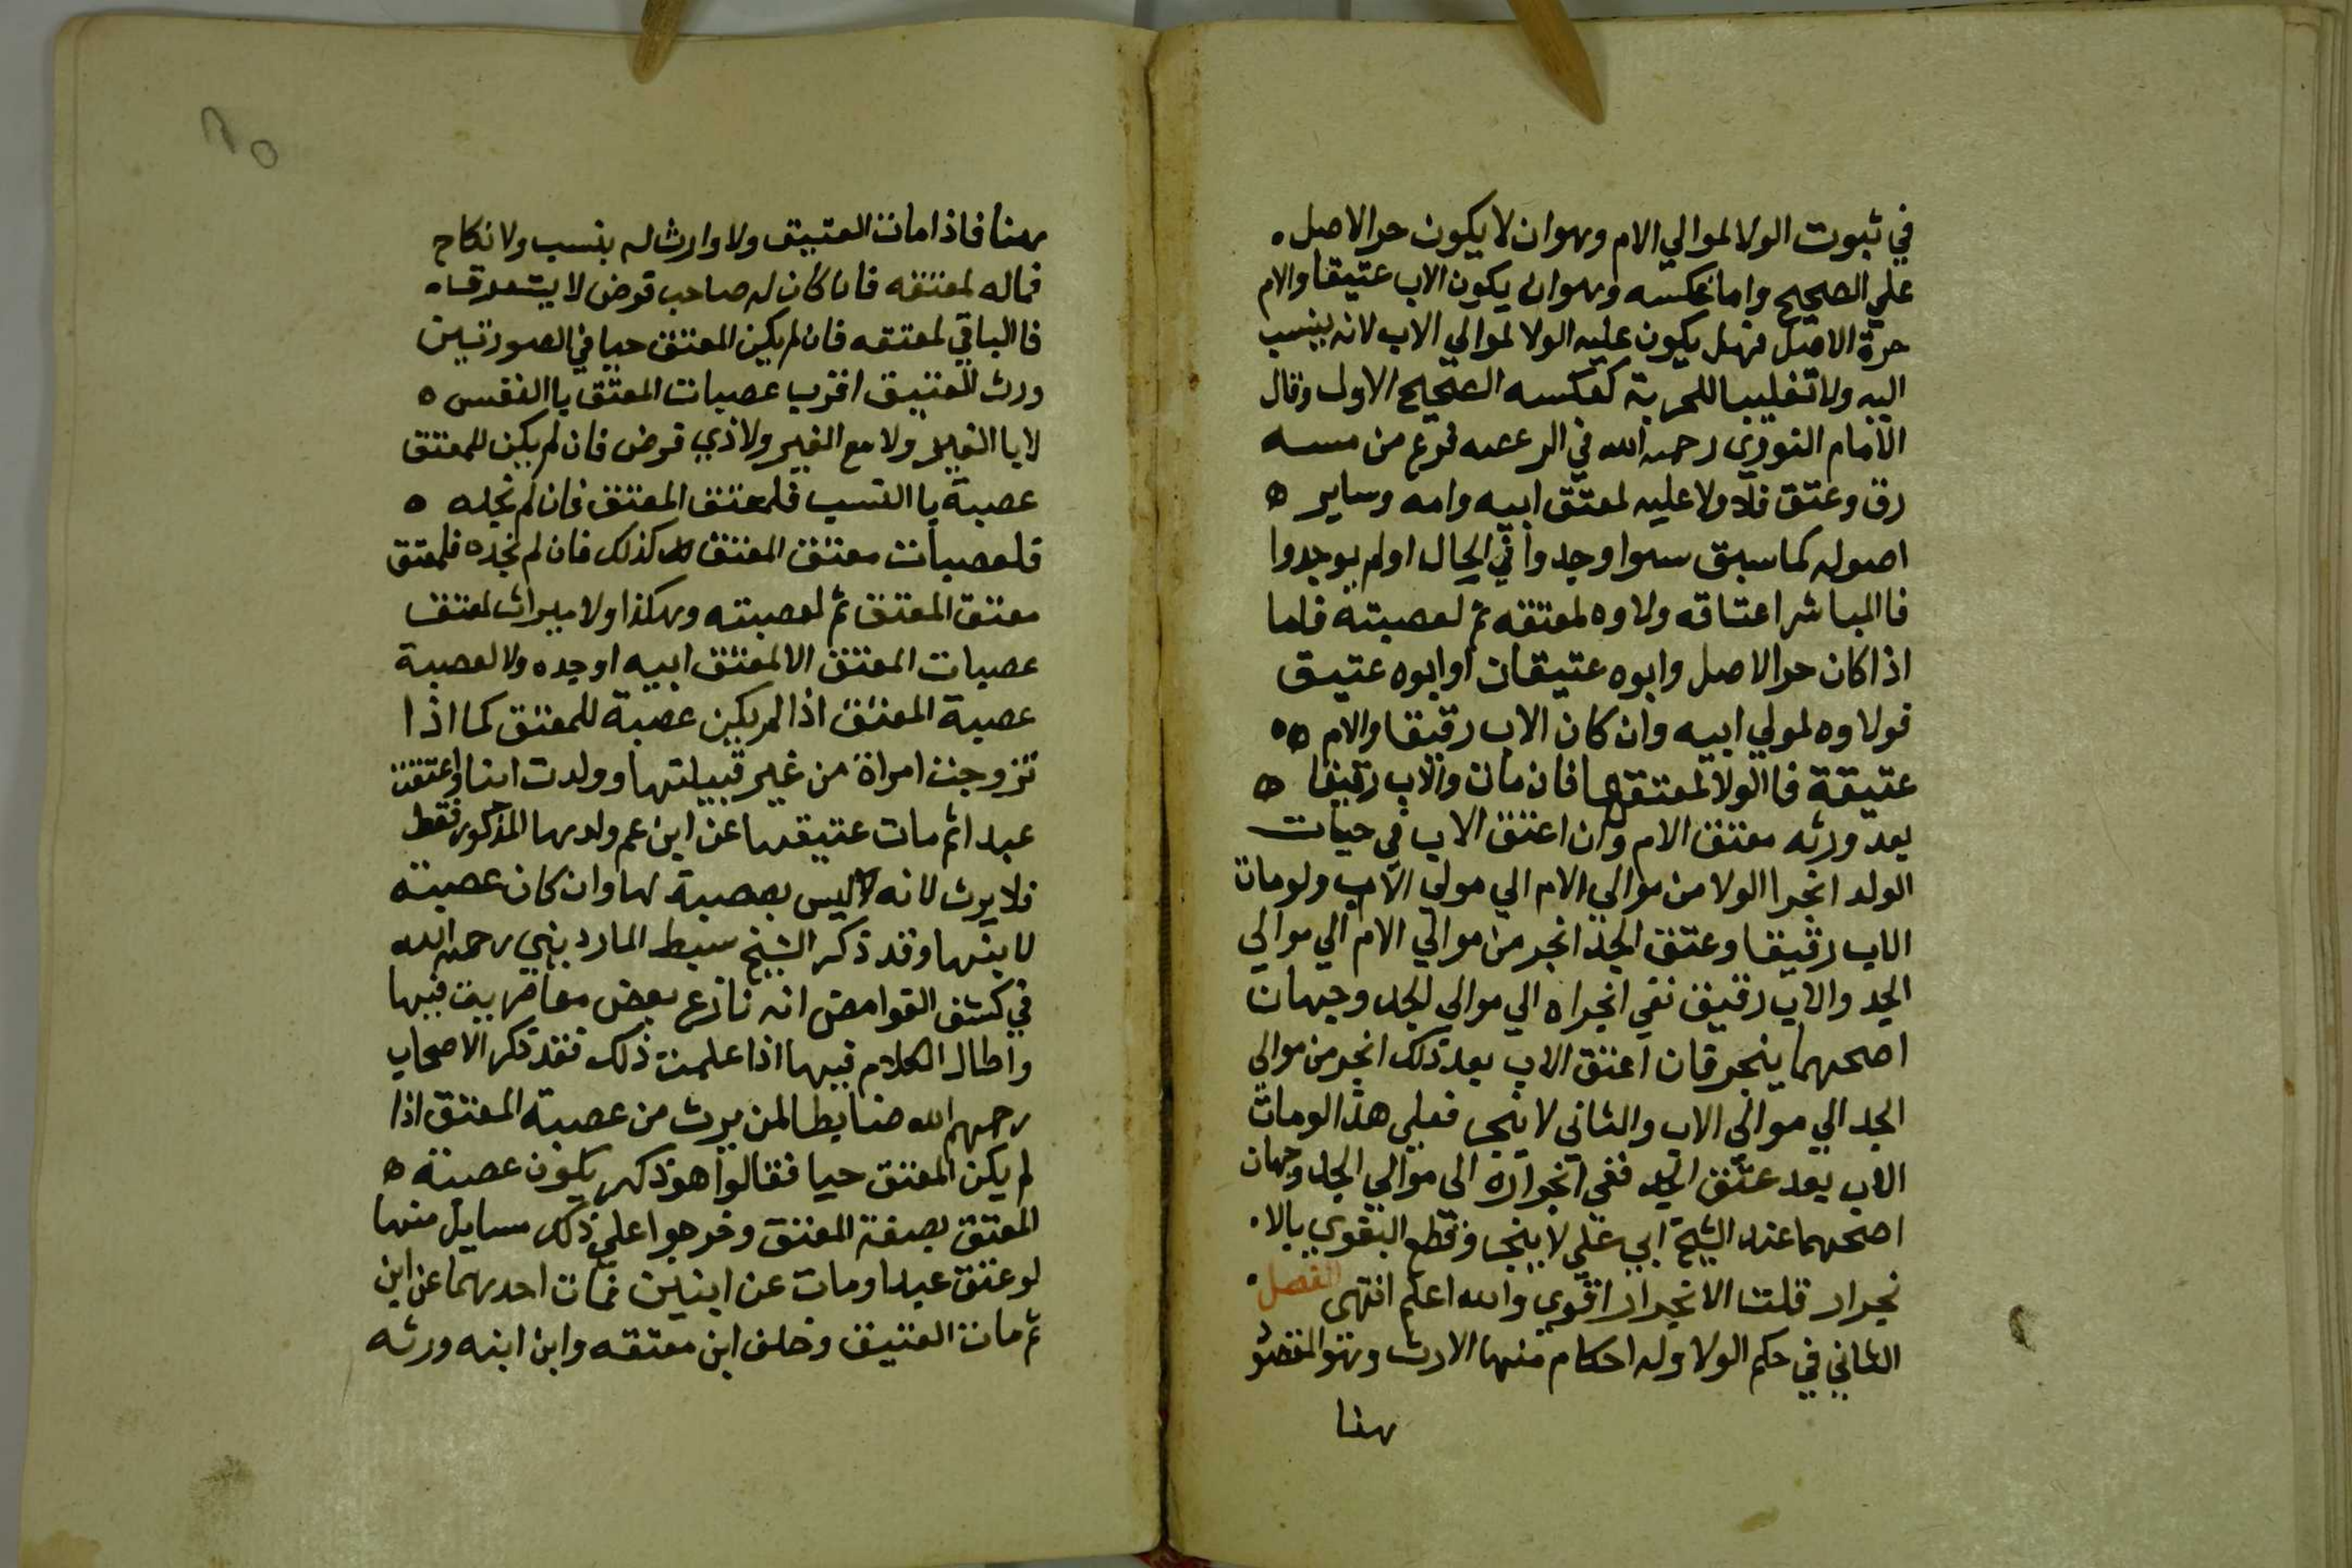 في ثبوت الولا لموالي الام وهو ان لا يكون حر الاصل
علي الصحيح واما عكسه وهو ان يكون الاب عتيقا والام
حرة الاصل فهل يكون عليه الولا لموالي الاب لانه ينسب
اليه ولا تغليبا للحرية كعكسه الصحيح الاول وقال
الامام النووي رحمه الله في فرع من مسه
رق وعتق فلا ولا عليه لمعتق ابيه وامه وساير ه
اصوله كما سبق سوا وجدوا في الحال اولم يوجدوا
فا المباشر اعتاقه ولاوه لمعتقه ثم لعصبته فاما
اذا كان حر الاصل وابوه عتيقان او ابوه عتيق
فولاوه لمولي ابيه وان كان الاب رقيقا والام ٥٥
عتيقة فا الولا لمعتقها فان مات والاب رقيقا ه
بعد ورثه معتق الام وان اعتق الاب في حيات
الولد انجرا الولا من موالي الام الي مولي الاب ولو مات
الاب رقيقا وعتق الجد انجر من موالي الام الي موالي
الجد والاب رقيق نفي انجراه الي موالي الجد وجهان
اصحهما ينجر فان اعتق الاب بعد ذلك انجر من موالي
الجد الي موالي الاب والثاني لا ينجر فعلي هذا لو مات
الاب بعد عتق الجد ففي انجراره الي موالي الجد وجهان
اصحهما عند الشيخ ابي علي لا ينجر وقطع البغوي بالا
نجرار قلت الانجرار اقوي والله اعلم انتهي الفصل
الثاني في حكم الولا وله احكام منها الارث وهو المقصو
هنا
هنا فاذا مات العتيق ولا وارث له بنسب ولا نكاح
فماله لمعتقه فان كان له صاحب فرض لا يستغرقه
فا الباقي لمعتقه فان لم يكن المعتق حيا في الصورتين
ورث العتيق اقرب عصبات المعتق با النفس ه
لا با الغير ولا مع الغير ولا ذي فرض فان لم يكن للمعتق
عصبة با النسب فلمعتق المعتق فان لم نجده ه
فلعصبات معتق المعتق كذلك فان لم نجده فلمعتق
معتق المعتق ثم لعصبته وهكذا ولا ميراث لمعتق
عصبات المعتق الا لمعتق ابيه او جده ولا لعصبة
عصبة المعتق اذا لم يكن عصبة للمعتق كما اذا
تزوجت امراة من غير قبيلتها وولدت ابنا واعتقت
عبدا ثم مات عتيقها عن ابن عم ولدها المذكور فقط
فلا يرث لانه ليس بعصبة لها وان كان عصبته
لابنها وقد ذكر الشيخ سبط المارديني رحمه الله
في كشف القوامض انه نازع بعض معاصريه فيها
واطال الكلام فيها اذا علمت ذلك فقد ذكر الاصحاب
رحمهم الله ضابطا لمن يرث من عصبة المعتق اذا
لم يكن المعتق حيا فقالوا هو ذكر يكون عصبته ه
المعتق بصفة المعتق وخرجوا علي ذلك مسايل منها
لو عتق عبدا ومات عن ابنين فمات احدهما عن ابن
ثم مات العتيق وخلف ابن معتقه وابن ابنه ورثه